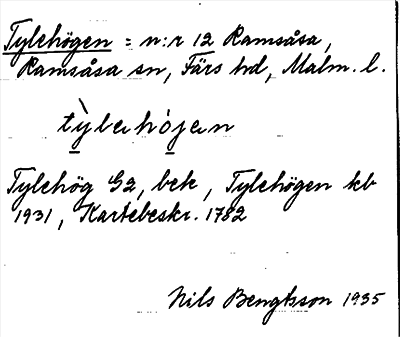 Tylehögen = n:r 12 Ramsåsa,
Ramsåsa sn, Färs hd, Malm. l.
tỳ̠lahö̠́jan
Tylehög G2, bek, Tylehögen kb
1931, Kartebeskr. 1782
Nils Bengtsson 1935